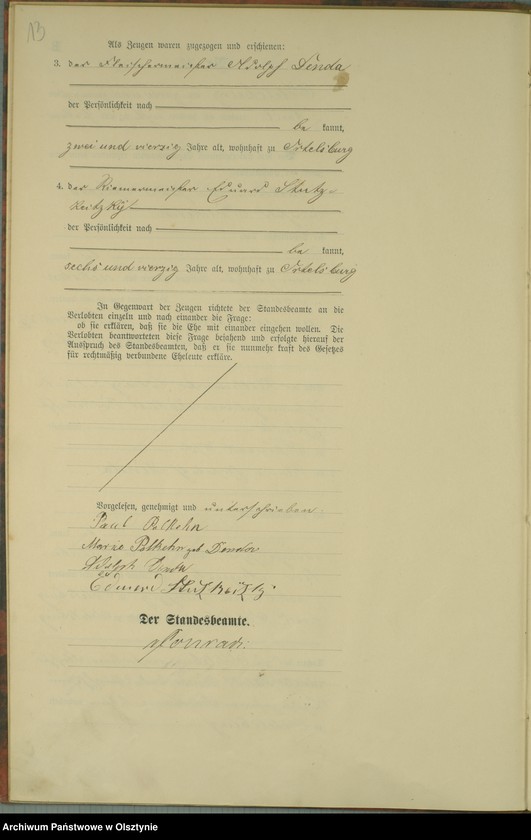 13
Als Zeugen waren zugezogen und erschienen:
3. der Fleischermeister Adolph Linda
der Persönlichkeit nach
be kannt,
zwei und vierzig Jahre alt, wohnhaft zu Ortelsburg
4. der Riemermeister Eduard
der Persönlichkeit nach
be kannt,
sechs und vierzig Jahre alt, wohnhaft zu Ortelsburg
In Gegenwart der Zeugen richtete der Standesbeamte an die
Verlobten einzeln und nach einander die Frage:
ob sie erklären, daß sie die Ehe mit einander eingehen wollen. Die
Verlobten beantworteten diese Frage bejahend und erfolgte hierauf der
Ausspruch des Standesbeamten, daß er sie nunmehr kraft des Gesetzes
für rechtmäßig verbundene Eheleute erkläre.
Vorgelesen, genehmigt und unterschrieben:
Paul
Marie geb
Adolph Linda
Der Standesbeamte.
Conrad.
Archiwum Państwowe w Olsztynie